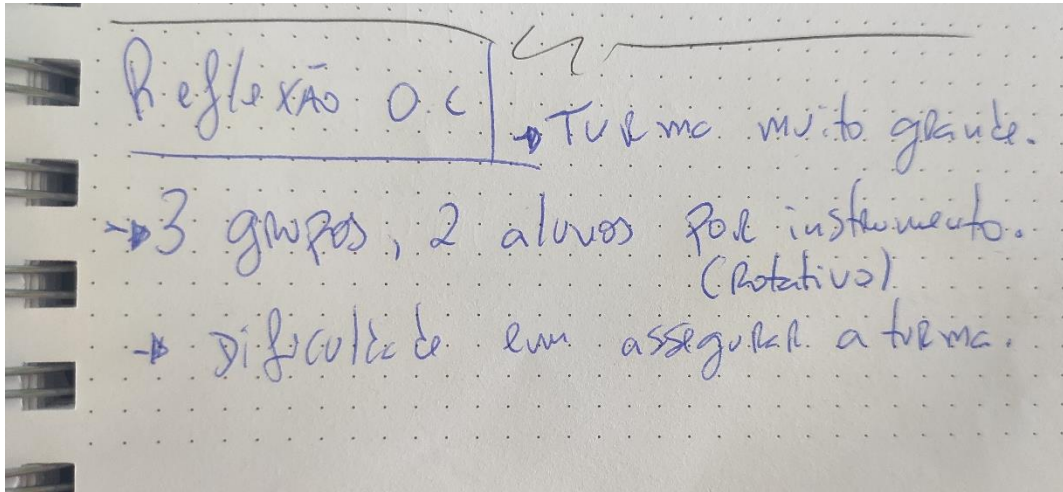 Reflexão O.C
→ Turma muito grande.
→ 3 grupos, 2 alunos por instrumento.
(Rotativo)
→ Dificuldade em assegurar a turma.